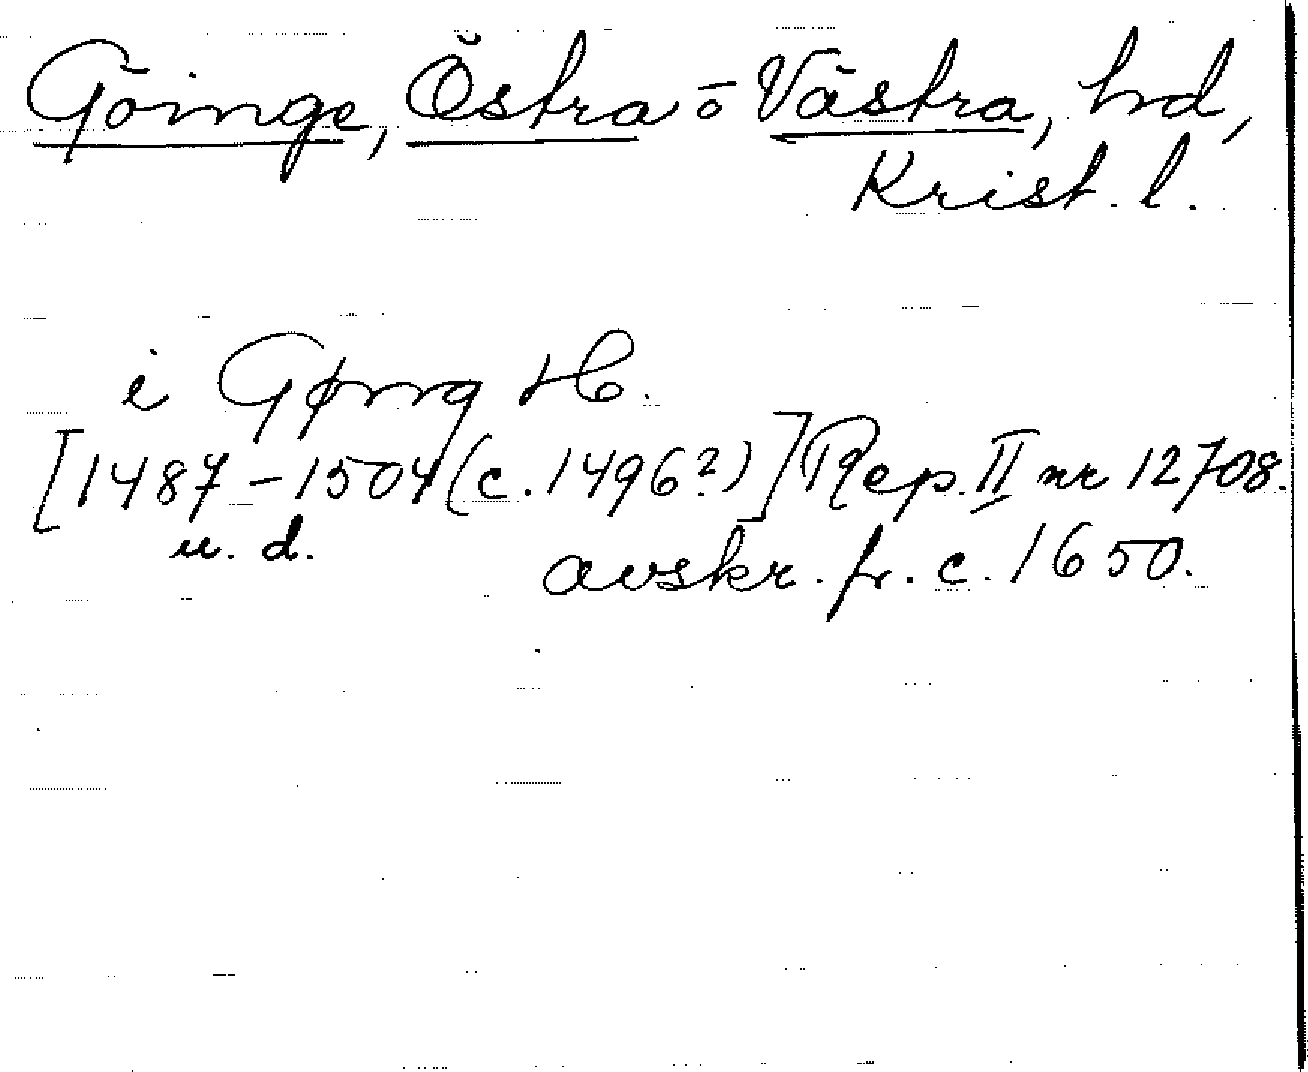 Göinge, Östra o Västra, hd,
Krist. l.
i Gømg H.
[1487-1504 (c. 1496?)] Rep. II nr 12708.
u. d. avskr. fr. c. 1650.